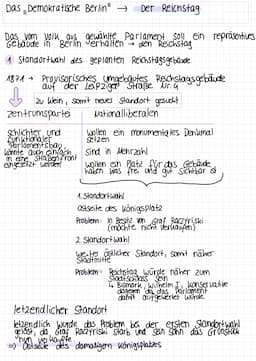 Das „Demokratische Berlin" → Der Reichstag
Das vom Volk aus gewählte Parlament soll ein repräsentives
Gebäude in Berlin erhalten → den Reichstag
1 Standortwahl des geplanten Reichstagsgebäude
1871 → Provisorisches umgebautes Reichstagsgebäude
auf der Leipziger Straße Nr. 4
↳ zu klein, somit neues Standort gesucht
Zentrumspartei
Nationalliberalen
schlichter und
funktionaler
Parlamentsbau,
könnte auch einfach
in eine Straßenfront
eingesetzt werden
wollen ein monumentales Denkmal
setzen
sind in Mehrzahl
wollen ein Platz für das Gebäude
haben was frei und gut sichtbar ist
1. Standortwahl
Ostseite des Königsplatz
Problem: in Besitz von Graf Raczyński
(möchte nicht verkaufen)
2. Standortwahl
weiter östlicher Standort, somit näher
Stadtmitte
Problem: Reichstag würde näher zum
Stadtschloss sein
↳ Bismark, Wilhelm I, konservative
dagegen da das Parlament
damit aufgewertet würde
letzendlicher Standort
letzendlich wurde das Problem bei der ersten Standortwahl
gelöst, da Graf Raczyński starb und sein Sohn das Grundstück
nun verkaufte
→ Ostseite des damaligen Königsplatzes